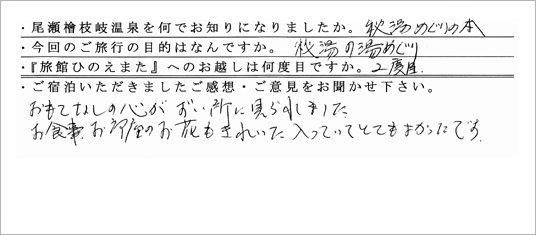 ・尾瀬檜枝岐温泉を何でお知りになりましたか。秘湯めぐりの本
・今回のご旅行の目的はなんですか。秘湯の湯めぐり
・『旅館ひのえまた』へのお越しは何度目ですか。2度目
・ご宿泊いただきましたご感想・ご意見をお聞かせ下さい。
おもてなしの心が ずい所に見られました
お食事、お部屋のお花もきれいた 入っていてとてもよかったです。